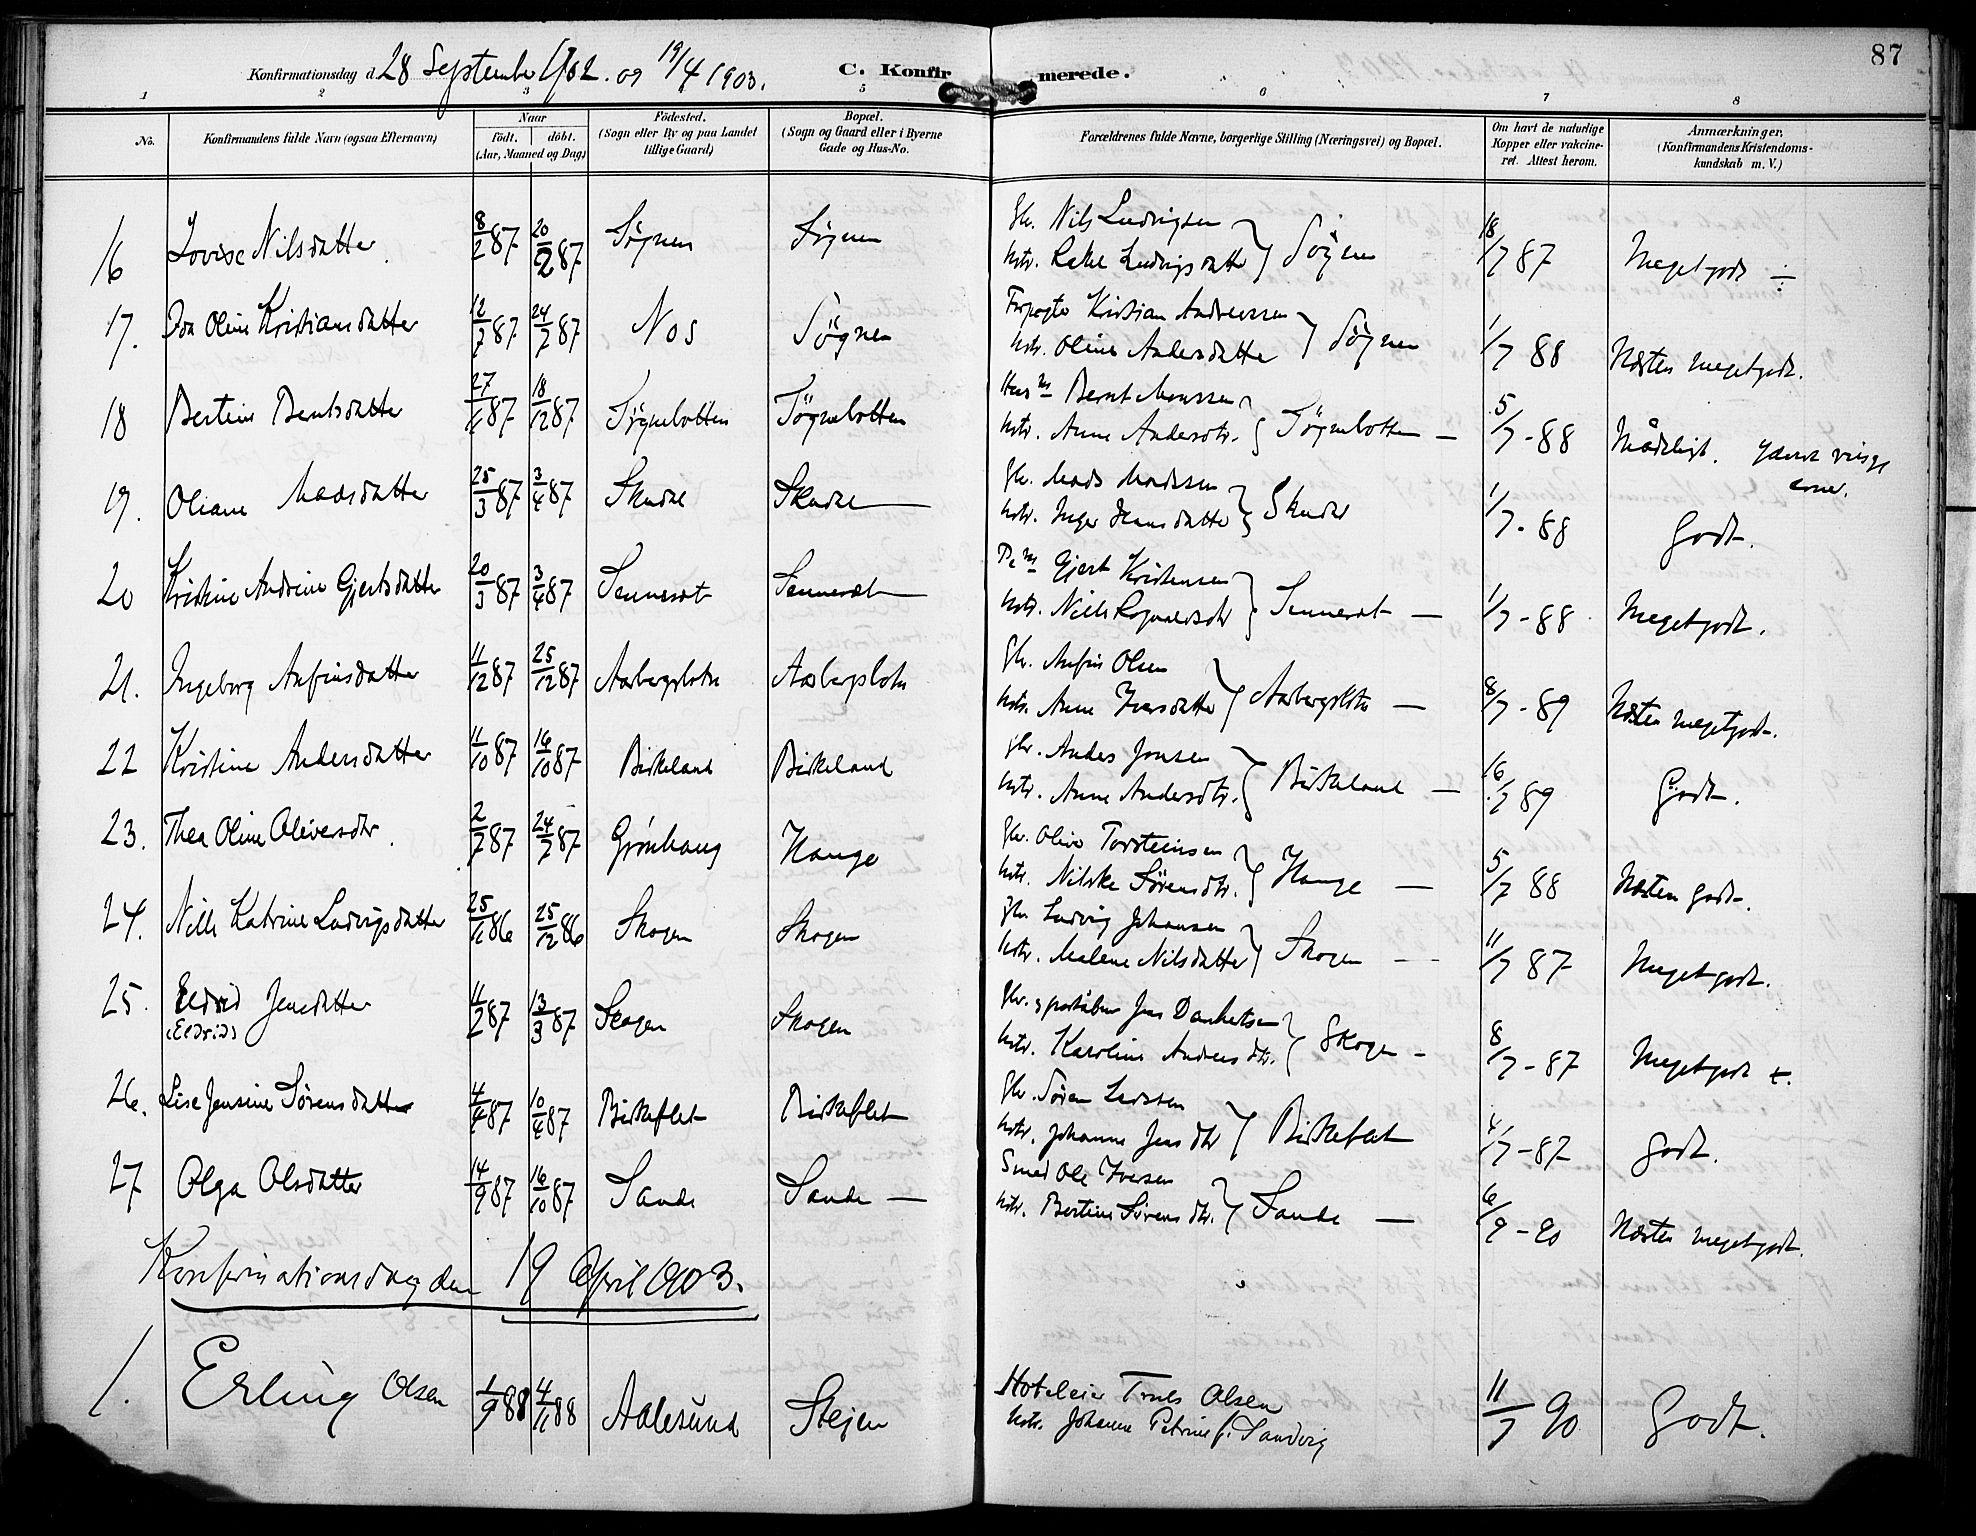 87
Konfirmationsdag d. 28 September 1902. og 19/4 1903. C. Konfirmerede.
1 2 3 5 6 7 8
No. Konfirmandens fulde Navn (ogsaa Efternavn) Naar født. døbt. (Aar, Maaned og Dag) Fødested. (Sogn eller By og paa Landet tillige Gaard) Bopæl. (Sogn og Gaard eller i Byerne Gade og Hus-No. Forældrenes fulde Navne, borgerlige Stilling (Næringsvei) og Bopæl. Om havt de naturlige Kopper eller vakcineret. Attest herom. Anmærkninger, (Konfirmandens Kristendomskundskab m. V.)
16 Lovise Nilsdatter. 8/2 87 20/2 87 Søgnen Søgnen Gbr. Nils Ludvigsen Kstr. Rakel Ludvigsdatter } Søgnen 18/7 87 Meget godt ÷
17. Ida Oline Kristiansdatter 12/7 87 24/7 87 Nos Søgnen Kristian Andreassen Kstr. Oline Andersdatter } Søgnen 1/7 88 Næsten meget godt.
18 Bertine Berntsdatter 27/11 87 18/12 87 Søgnebotten Søgnebotten Husm. Bernt Monssen Kstr. Anne Andersdtr. } Søgnebotten — 5/7 - 88 Mådeligt.
19. Oliane Madsdatter 25/3 87 3/4 87 Skudal Skudal Gbr. Mads Madssen Kstr. Inger Hansdatter } Skudal 1/7 - 88 Godt.
20 Kristine Andrine Gjertsdatter 20/3 87 3/4 87 Sunneset Gjert Kristensen Kstr. Nille Rognaldsdtr } — 1/7 - 88 Meget godt.
21. Ingeborg Anfinsdatter 11/12 87 25/12 87 Aasbergslotten Aasbergslotten Gbr. Anfin Olsen Kstr. Anne Iversdatter } Aasbergslotten — 8/7 - 89 Næsten meget godt.
22 Kristine Andersdatter 11/10 87 16/10 87 Birkeland Birkeland Gbr. Anders Jonsen Kstr. Anne Andersdtr. } Birkeland — 16/7 89 Godt.
23. Thea Oline Oliversdtr. 2/7 87 24/7 87 Grønhaug Hauge Gbr. Oliver Torsteinsen Kstr. Nilske Sørensdtr. } Hauge — 5/7 88 Næsten godt.
24. Nille Katrine Ludvigsdatter 25/11 86 25/12 86 Skogen Skogen Gbr. Ludvig Johansen Kstr. Malene Nilsdatter } Skogen — 11/7 87 Meget godt.
25. Eldrid Jensdatter (Eldrid) 11/2 87 13/3 87 Skogen Skogen Gbr. Jens Kstr. Karoline Andreasdtr. } Skogen - 8/7 - 87 Meget godt +.
26. Lise Jensine Sørensdatter 4/4 87 10/4 87 Birkeflot Birkeflot Gbr. Søren Larssen Kstr. Johanne Jensdtr } Birkeflot 4/7 - 87 Godt.
27 Olga Olsdatter 14/9 87 16/10 87 Sande Sande — Smed Ole Iversen Kstr. Bertine Sørensdtr. } Sande — 6/9 - 90 Næsten meget godt.
Konfirmationsdag den 19 April 1903.
1. Erling Olsen 1/9 88 4/11 88 Aalesund Stejen Hoteleier Truls Olsen Kstr. Johanne Petrine f. Sandvig 11/7 90 Godt.